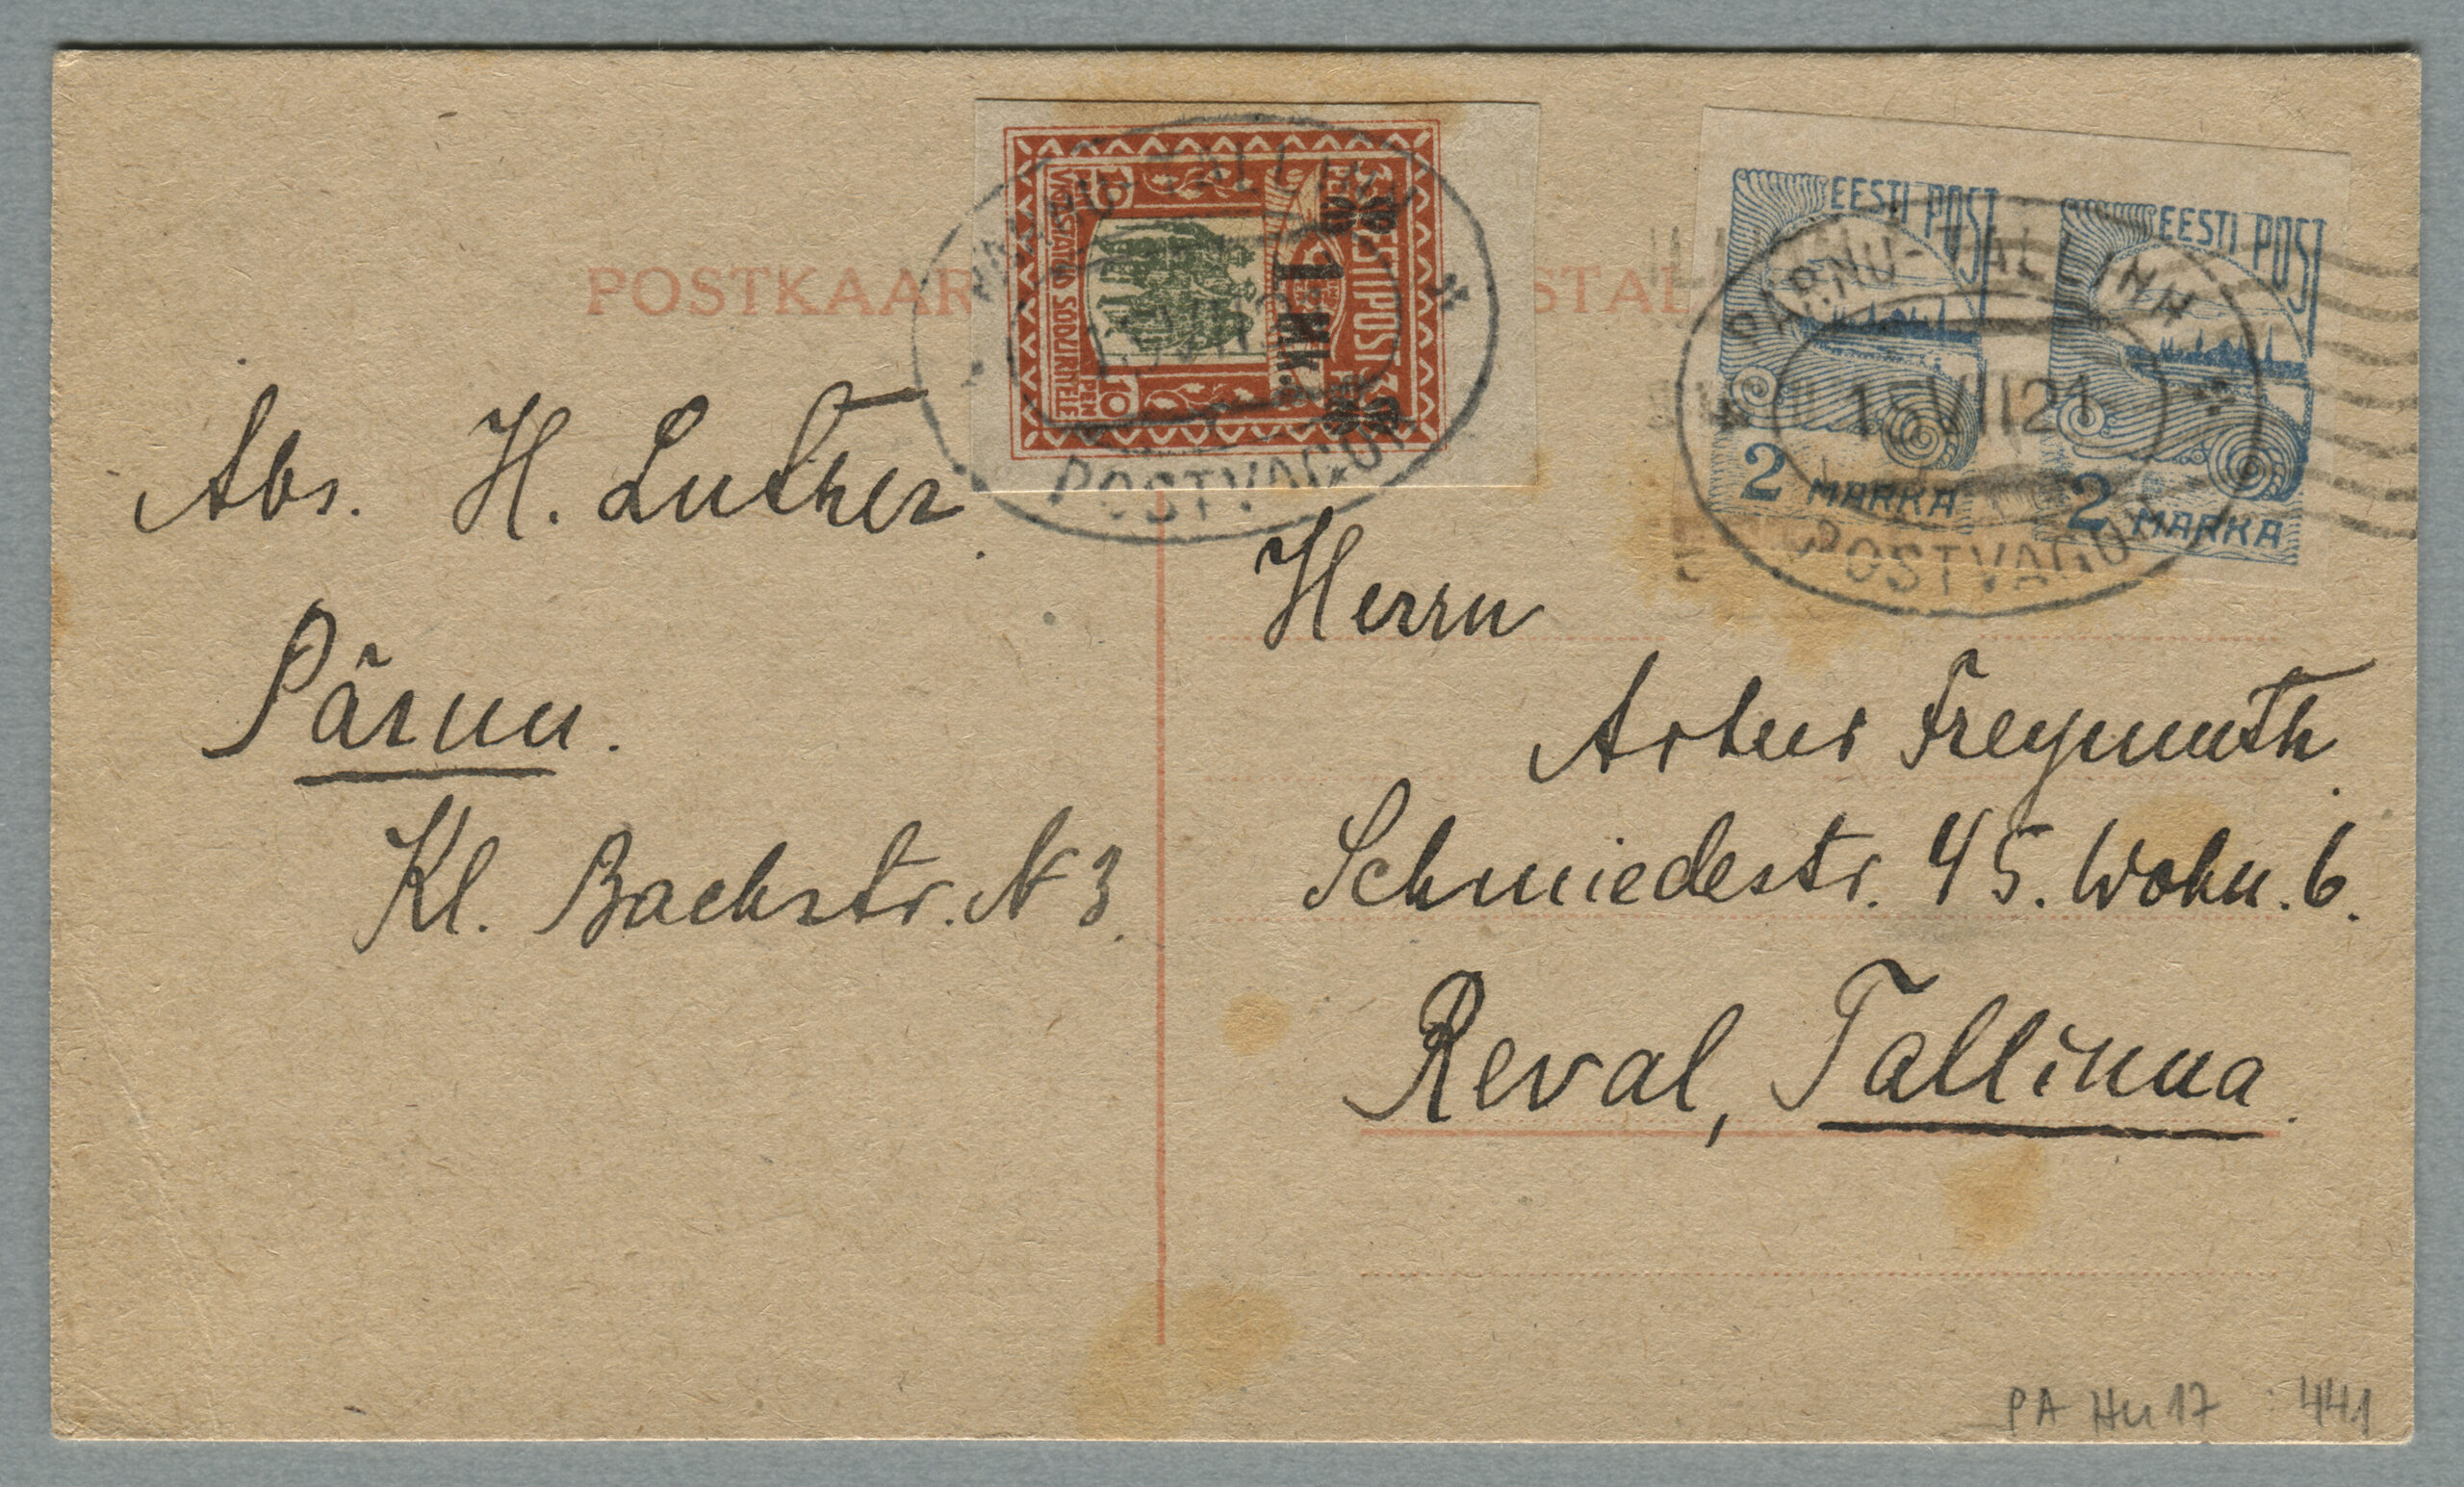 POSTKAAR
STAL
EESTI POST
2 MARKA
EESTI POST
2 MARKA
EESTI POST
1 Mk.
VIGASTATUD SÕDURITELE
PÄRNU-TALLINN
POSTVAGUN
PÄRNU-TALLINN
15 VII 21
POSTVAGUN
Abs. H. Luther.
Pärnu.
Kl. Bachstr. N 3.
Herrn
Artur Freymuth.
Schmiedestr. 45. Wohn. 6.
Reval, Tallinna.
PA Hu 17 441